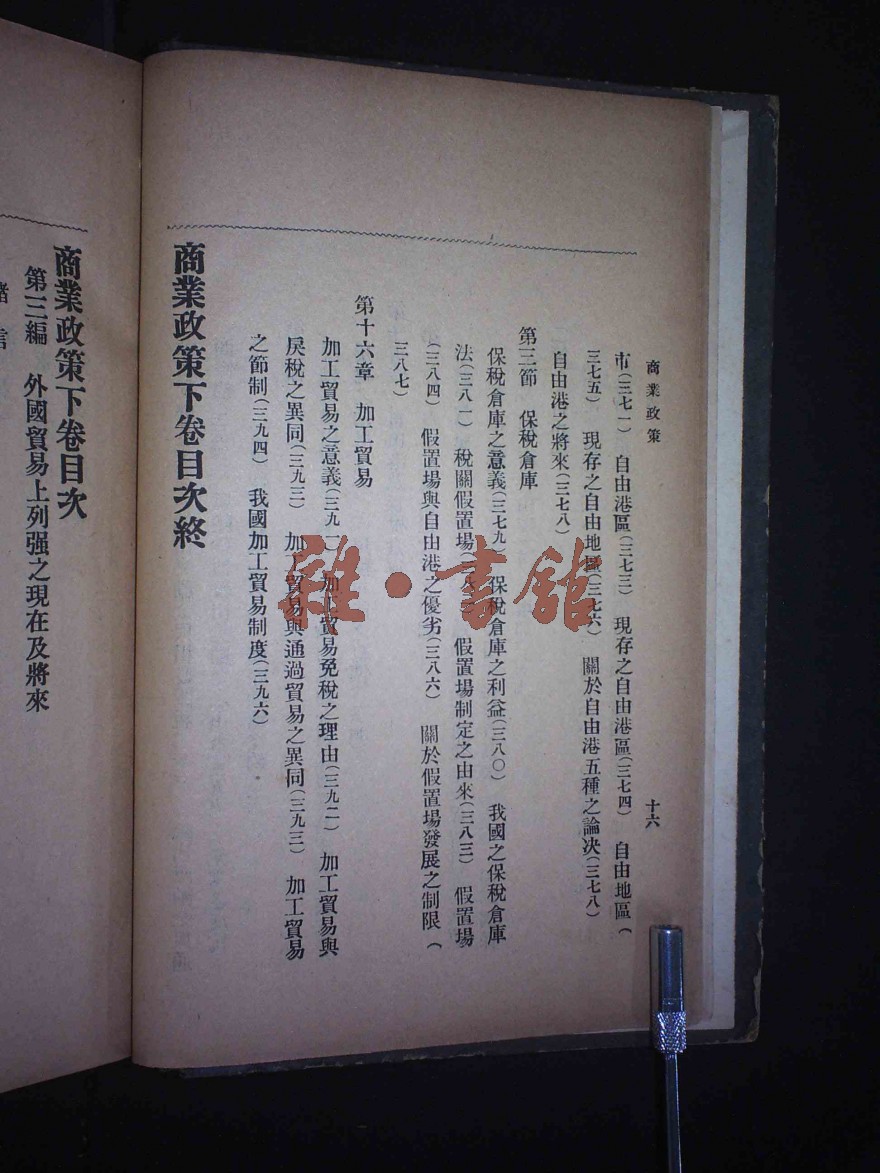 商業政策
十六
市(三七一) 自由港區(三七三) 現存之自由港區(三七四) 自由地區(
三七五) 現存之自由地區(三七六) 關於自由港五種之論决(三七八)
自由港之將來(三七八)
第三節 保稅倉庫
保稅倉庫之意義(三七九) 保稅倉庫之利益(三八〇) 我國之保稅倉庫
法(三八一) 稅關假置場(三八二) 假置場制定之由來(三八三) 假置場
(三八四) 假置場與自由港之優劣(三八六) 關於假置場發展之制限(
三八七)
第十六章 加工貿易
加工貿易之意義(三九一) 加工貿易免稅之理由(三九二) 加工貿易與
戾稅之異同(三九三) 加工貿易與通過貿易之異同(三九三) 加工貿易
之節制(三九四) 我國加工貿易制度(三九六)
商業政策下卷目次終
商業政策下卷目次
第三編 外國貿易上列强之現在及將來
緒言
雜·書館